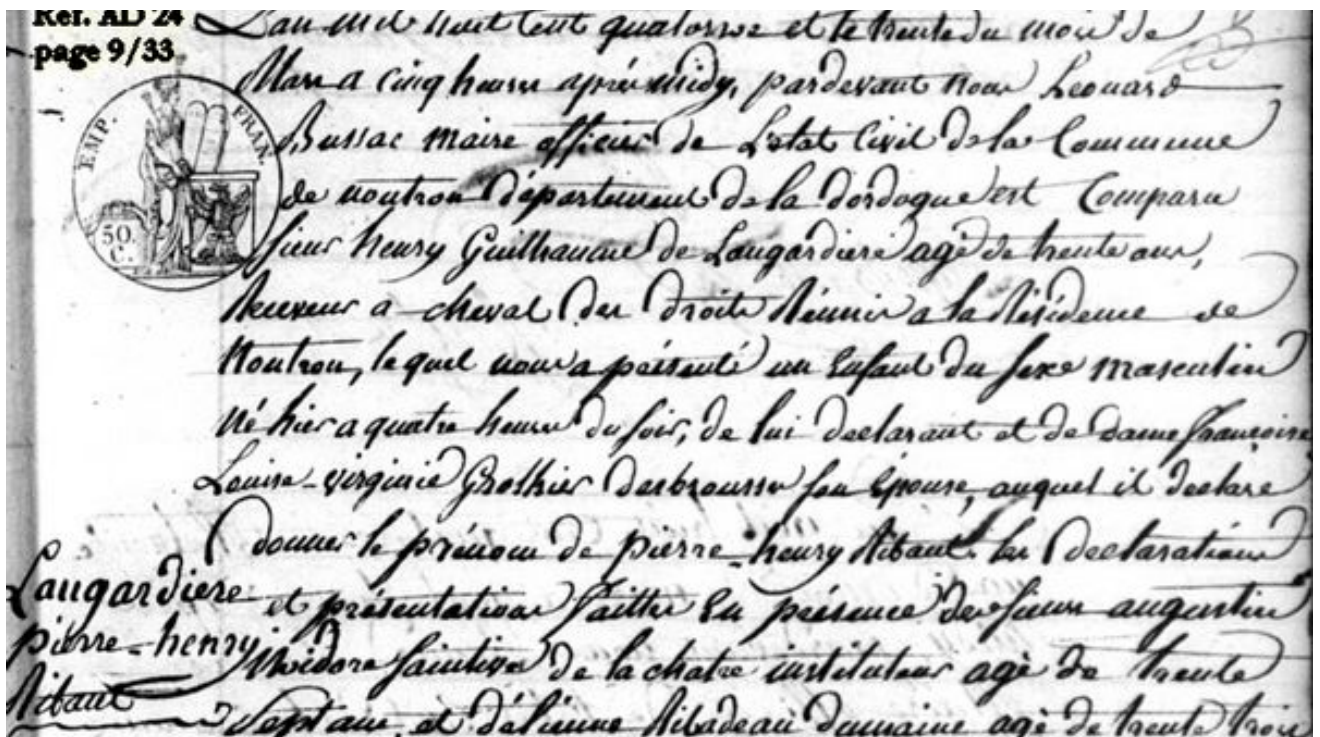 Ref. AD 24
page 9/33
L'an mil huit cent quatorze et le trente du mois de
Mars a cinq heures après midy, pardevant nous Leonard
Bussac maire officier de L'etat Civil de la Commune
de nontron département de la dordogne est Comparu
sieur henry Guilhaume de Laugardiere agé de trente ans,
Receveur a cheval des droits Réunis a la Résidence de
Nontron, lequel nous a présenté un Enfant du sexe masculin
Né hier a quatre heures du soir, de lui declarant et de dame francoise
Louise-virginie Grolhier desbrousses son Épouse, auquel il declare
donner le prénom de pierre-henry Ribaut les declarations
et présentations faittes En présence de sieurs augustin
de la chatre instituteur agé de trente
Sept ans, et d'étienne Ribadeau dumaine agé de trente trois
Laugardiere
pierre-henry
Ribaut
EMP. FRAN.
50 C.